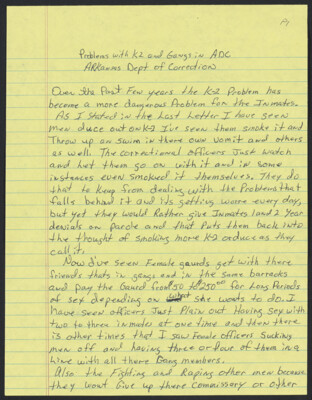 Problems with K2 and Gangs in ADC
ARKansas Dept of Correction
Over the Past Few years the K-2 Problem has
become a more dangerous Problem for the Inmates.
AS I Stated in the Last Letter I have seen
men duce out on K-2 I've seen them smoke it and
Throw up an Swim in there own vomit and others
as well. The correctional officers Just watch
and Let them go on with it and in some
instances even smoked it themselves. They do
that to keep from dealing with the Problem that
falls behind it and its getting worse every day,
but yet they would Rather give Inmates 1 and 2 Year
denials on parole and that Puts them back into
the thought of smoking more K-2 or duce as they
call it.
Now I've seen Female guards get with there
friends thats in gangs and in the same barracks
and pay the Gaurd from 50 to 250.00 for Long Periods
of sex depending on what she wants to do. I
have seen officers Just Plain out Having sex with
two to three inmates at one time and then there
is other times that I saw Female officers Sucking
men off and having three or four of them in a
Line with all there Gang members.
Also the Fighting and Raping other men because
they wont Give up there commissary or other